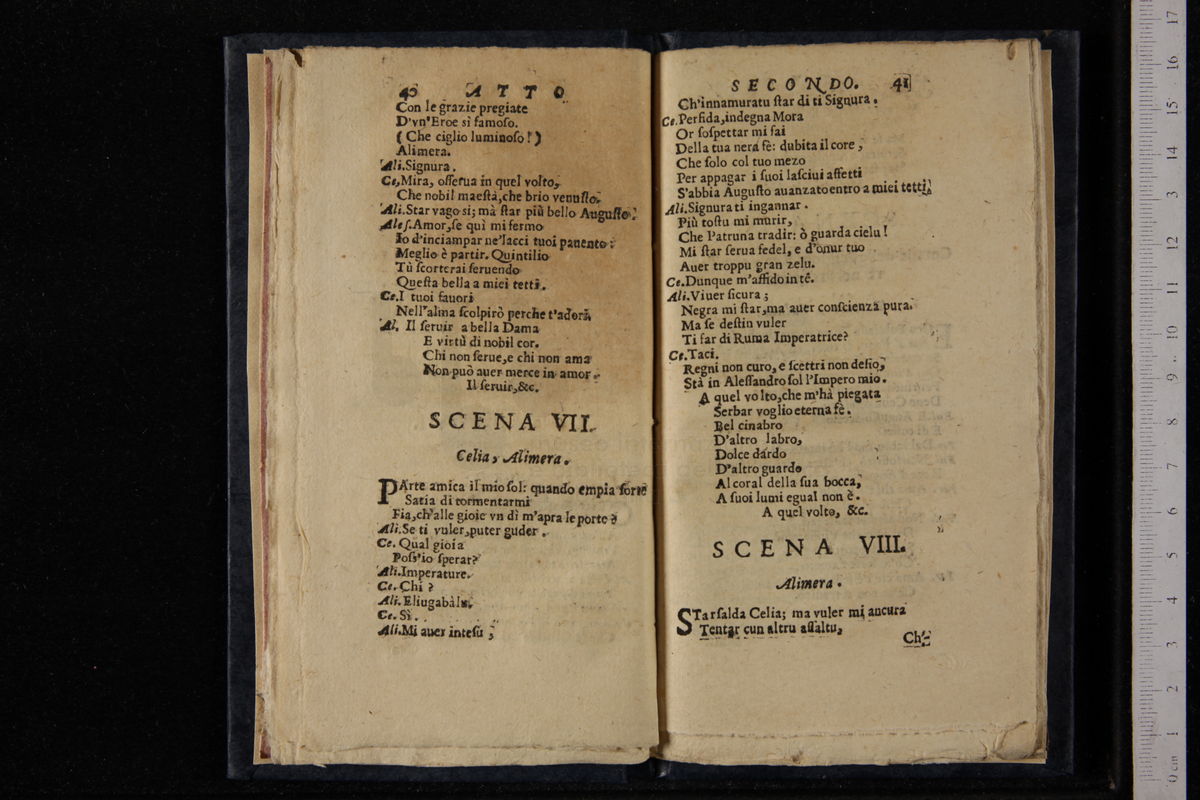 40 ATTO
Con le grazie pregiate
D'vn'Eroe sì famoſo.
( Che ciglio luminoſo ! )
Alimera.
Ali. Signura.
Ce, Mira, oſſerua in quel volto,
Che nobil maeſtà, che brio venuſto.
Ali. Star vago si; mà ſtar più bello Auguſto.
Aleſ. Amor, ſe quì mi fermo
Io d'inciampar ne'lacci tuoi pauento:
Meglio è partir. Quintilio
Tù ſcorterai ſeruendo
Queſta bella a miei tetti.
Ce. I tuoi fauori
Nell'alma ſcolpirò perche t'adori.
Al. Il ſeruir a bella Dama
E virtù di nobil cor.
Chi non ſerue, e chi non ama
Non può auer merce in amor.
Il ſeruir, &c.
SCENA VII.
Celia, Alimera.
PArte amica il mio ſol: quando empia ſorte
Satia di tormentarmi
Fia, ch'alle gioie vn dì m'apra le porte ?
Ali. Se ti vuler, puter guder.
Ce. Qual gioia
Poſs'io ſperar?
Ali. Imperature.
Ce. Chi ?
Ali. Eliugabàlu.
Ce. Sì.
Ali. Mi auer inteſu ;
SECONDO. 41
Ch'innamuratu ſtar di ti Signura.
Ce. Perfida, indegna Mora
Or ſoſpettar mi fai
Della tua nera fè: dubita il core,
Che ſolo col tuo mezo
Per appagar i ſuoi laſciui affetti
S'abbia Auguſto auanzato entro a miei tetti.
Ali. Signura ti ingannar.
Più toſtu mi murir,
Che Patruna tradir: ò guarda cielu !
Mi ſtar ſerua fedel, e d'onur tuo
Auer troppu gran zelu.
Ce. Dunque m'affido in tè.
Ali. Viuer ſicura ;
Negra mi ſtar, ma auer conſcienza pura.
Ma ſe deſtin vuler
Ti far di Ruma Imperatrice?
Ce. Taci.
Regni non curo, e ſcettri non deſio,
Stà in Aleſſandro ſol l'Impero mio.
A quel volto, che m'hà piegata
Serbar voglio eterna fè.
Bel cinabro
D'altro labro,
Dolce dardo
D'altro guardo
Al coral della ſua bocca,
A ſuoi lumi egual non è.
A quel volto, &c.
SCENA VIII.
Alimera.
STar ſalda Celia; ma vuler mi ancura
Tentar cun altru aſſaltu,
Ch'-
0 cm 1 2 3 4 5 6 7 8 9 10 11 12 13 14 15 16 17